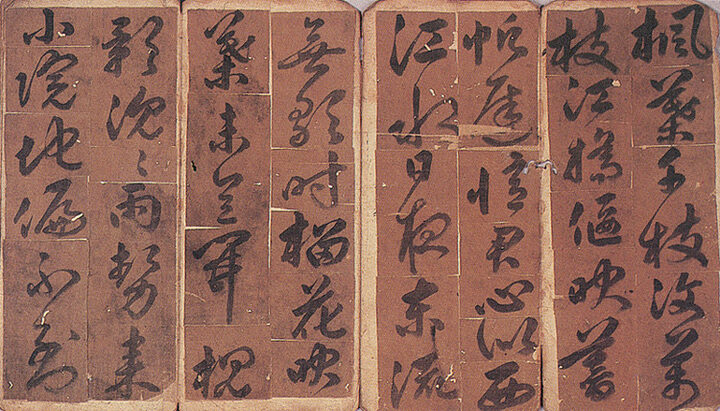 楓葉千枝復萬
枝江橋掩映暮
帆遲憶君心似西
江水日夜東流
無歇時榴花映
葉未全開槐
影沈〻雨勢來
小院地偏不到